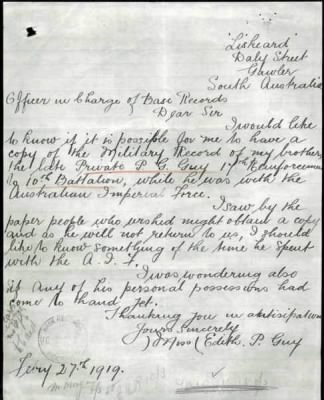 "Liskeard"
Daly Street
Gawler
South Australia
Officer in Charge of Base Records
Dear Sir
I would like
to know if it is possible for me to have a
copy of the Military Record of my brother,
the late Private P. G. Guy 17th Reinforcement
to 10th Battalion, while he was with the
Australian Imperial Force.
I saw by the
paper people who wished might obtain a copy
and as he will not return to us, I should
like to know something of the time he spent
with the A. I. F.
I was wondering also
if any of his personal possessions had
come to hand yet.
Thanking you in anticipation
Yours Sincerely
(Miss) Edith. P. Guy
Jury 27th 1919.